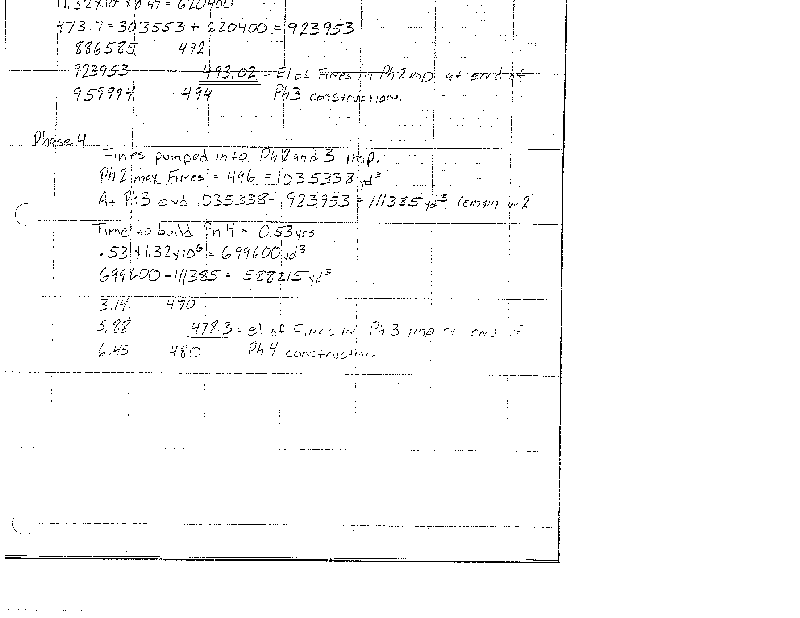 1.32x10⁶ x 0.47 = 620400
473.7 = 303553 + 620400 = 923953
886585 492
923953 493.02 = El of Fines in Ph 2 imp at end of
959994 494 Ph3 construction.
Phase 4
Fines pumped into Ph 2 and 3 imp.
Ph 2 max Fines = 496 = 1035338 yd³
At Ph 3 end 1035338 - 923953 = 111385 yd³ remain in 2
Time to build Ph 4 = 0.53 yrs
.53 x 1.32x10⁶ = 699600 yd³
699600 - 111385 = 588215 yd³
470
5.88 478.3 = el of Fines in Ph 3 imp at end of
6.45 480 Ph 4 construction